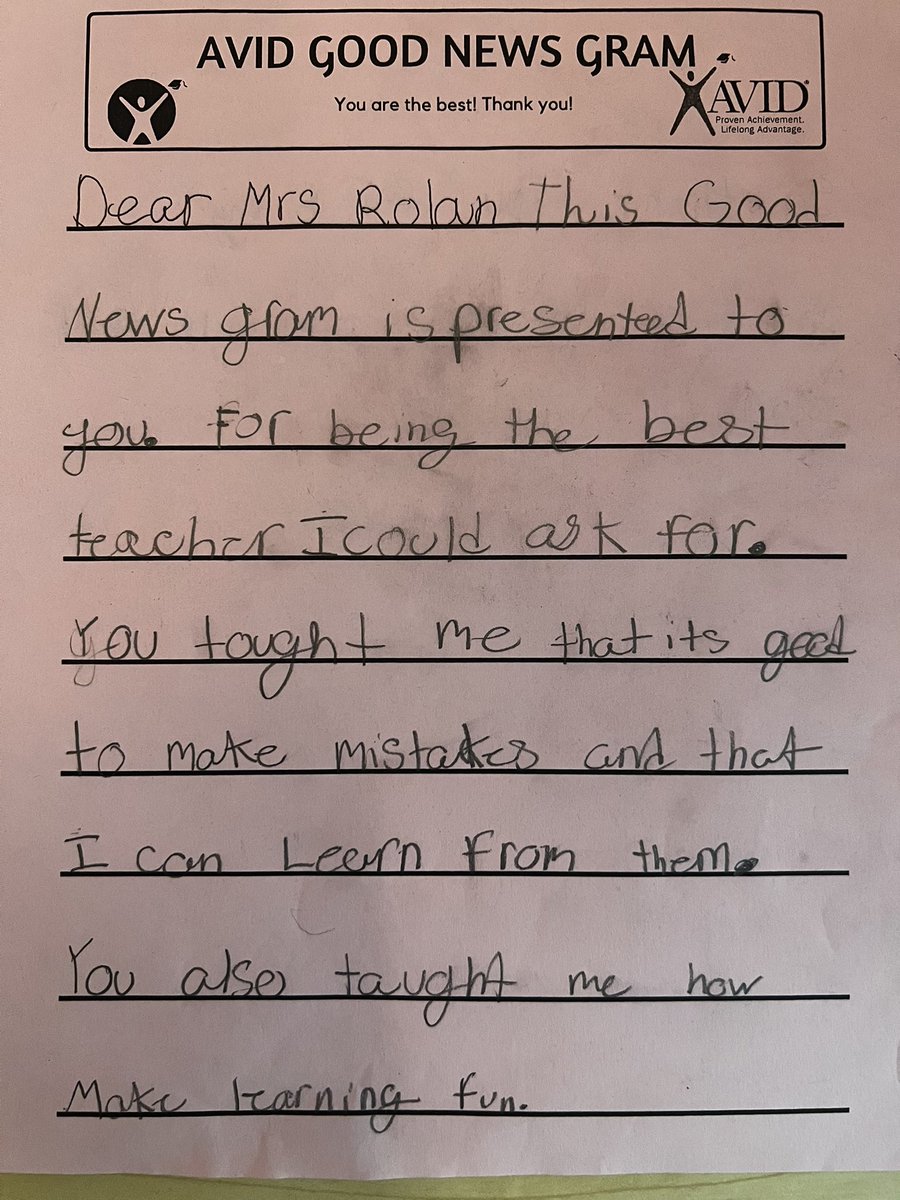 AVID GOOD NEWS GRAM
You are the best! Thank you!
AVID®
Proven Achievement.
Lifelong Advantage.
Dear Mrs Rolan This Good
News gram is presenteed to
you. For being the best
teacher I could ask for.
You tought me that its good
to make mistakes and that
I can Leern from them.
You also taught me how
Make learning fun.